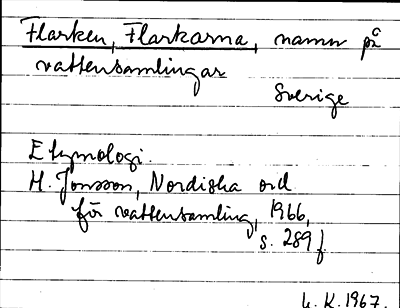 Flarken, Flarkarna, namn på
vattensamlingar
Sverige
Etymologi.
H. Jonsson, Nordiska ord
för vattensamling, 1966,
s. 289 f.
L. K. 1967.